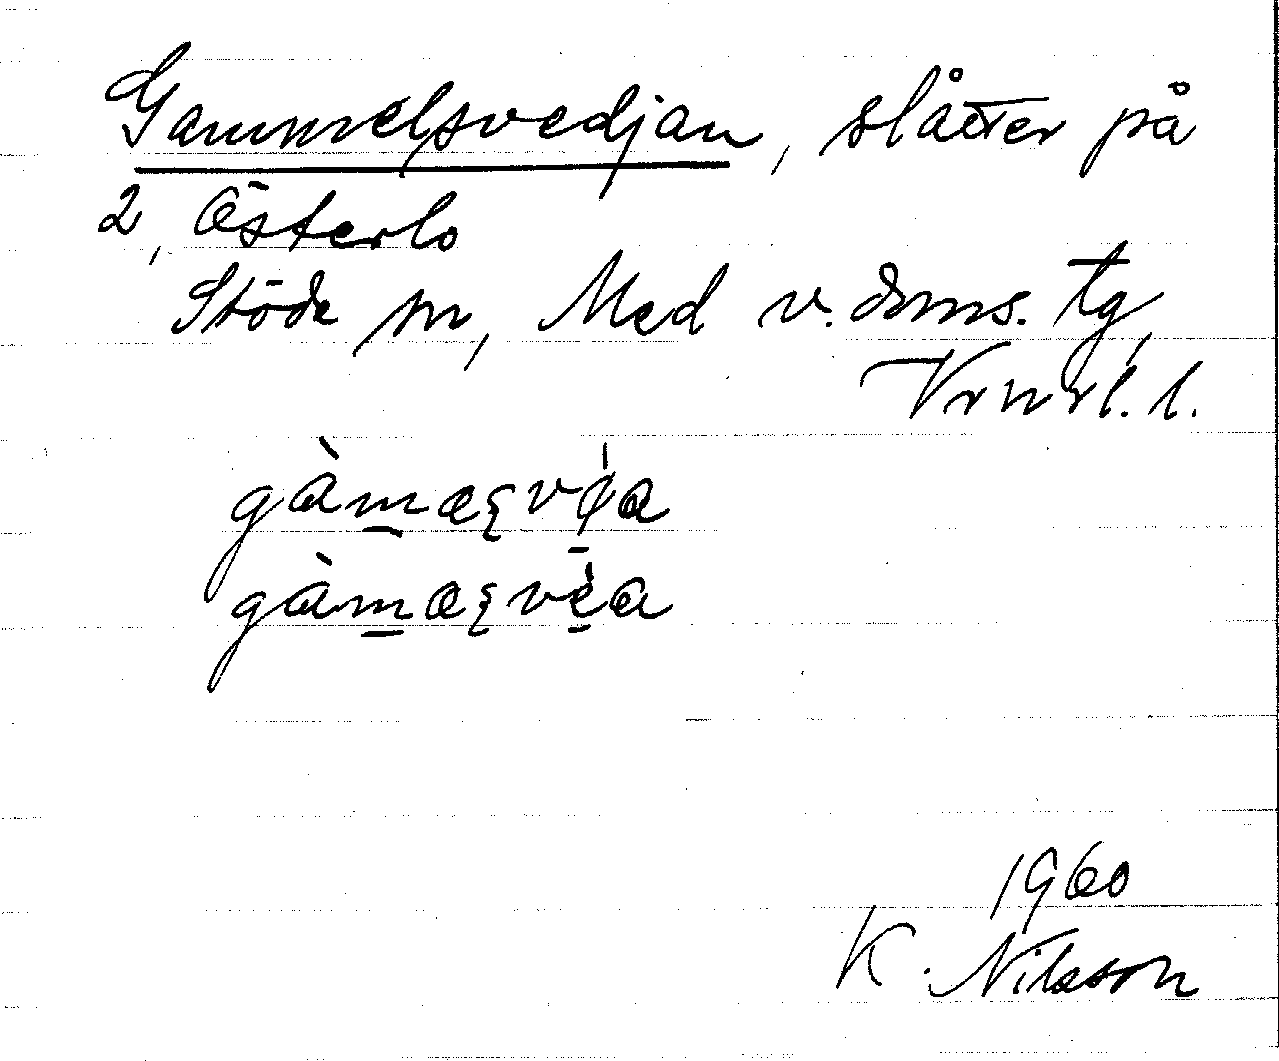 Gammelsvedjan, slåtter på
2, Österlo
Stöde sn, Med v. doms. tg,
Vrnrl. l.
gàmæʂve̍a
gàmæʂve̍a
1960
K. Nilsson